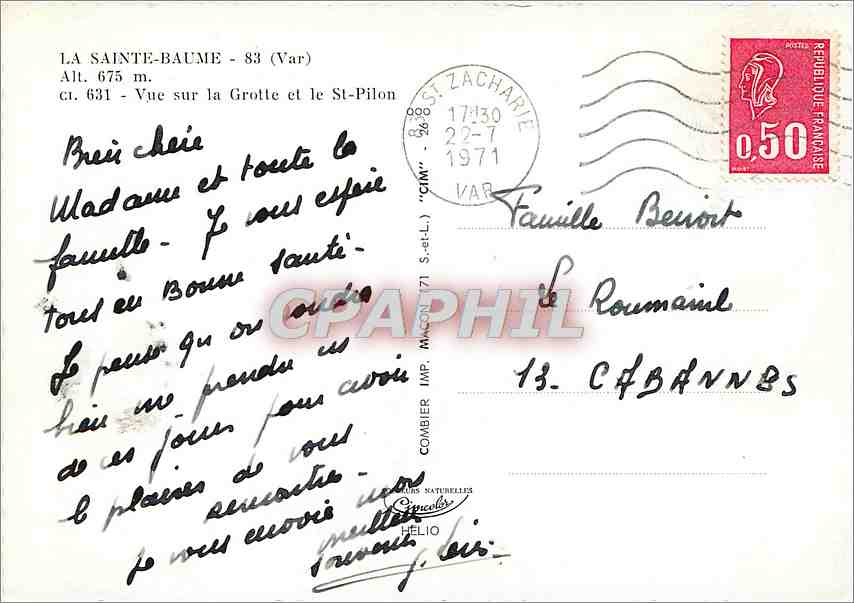 LA SAINTE-BAUME - 83 (Var)
Alt. 675 m.
CI. 631 - Vue sur la Grotte et le St-Pilon
Bien chère
Madame et toute la
famille - Je vous espère
tous en Bonne santé -
Je pense qu on
bien me prendre un
de ces jours pour avoir
le plaisir de vous
rencontrer -
Je vous envoie mes
meilleurs
souvenirs
COMBIER IMP. MACON (71 S.-et-L.) "CIM" - 26-0
COULEURS NATURELLES
Cimcolor
HELIO
CPAPHIL
ST ZACHARIE
17H30
22-7
1971
VAR
POSTES
REPUBLIQUE FRANÇAISE
0,50
Famille Benoit
Le Roumanil
13- CABANNES